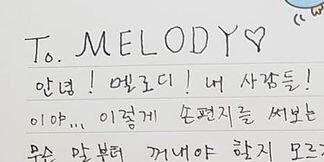 To. MELODY♡
안녕! 멜로디! 내 사람들!
이야... 이렇게 손편지를 써보는
무슨 말부터 꺼내야 할지 모르